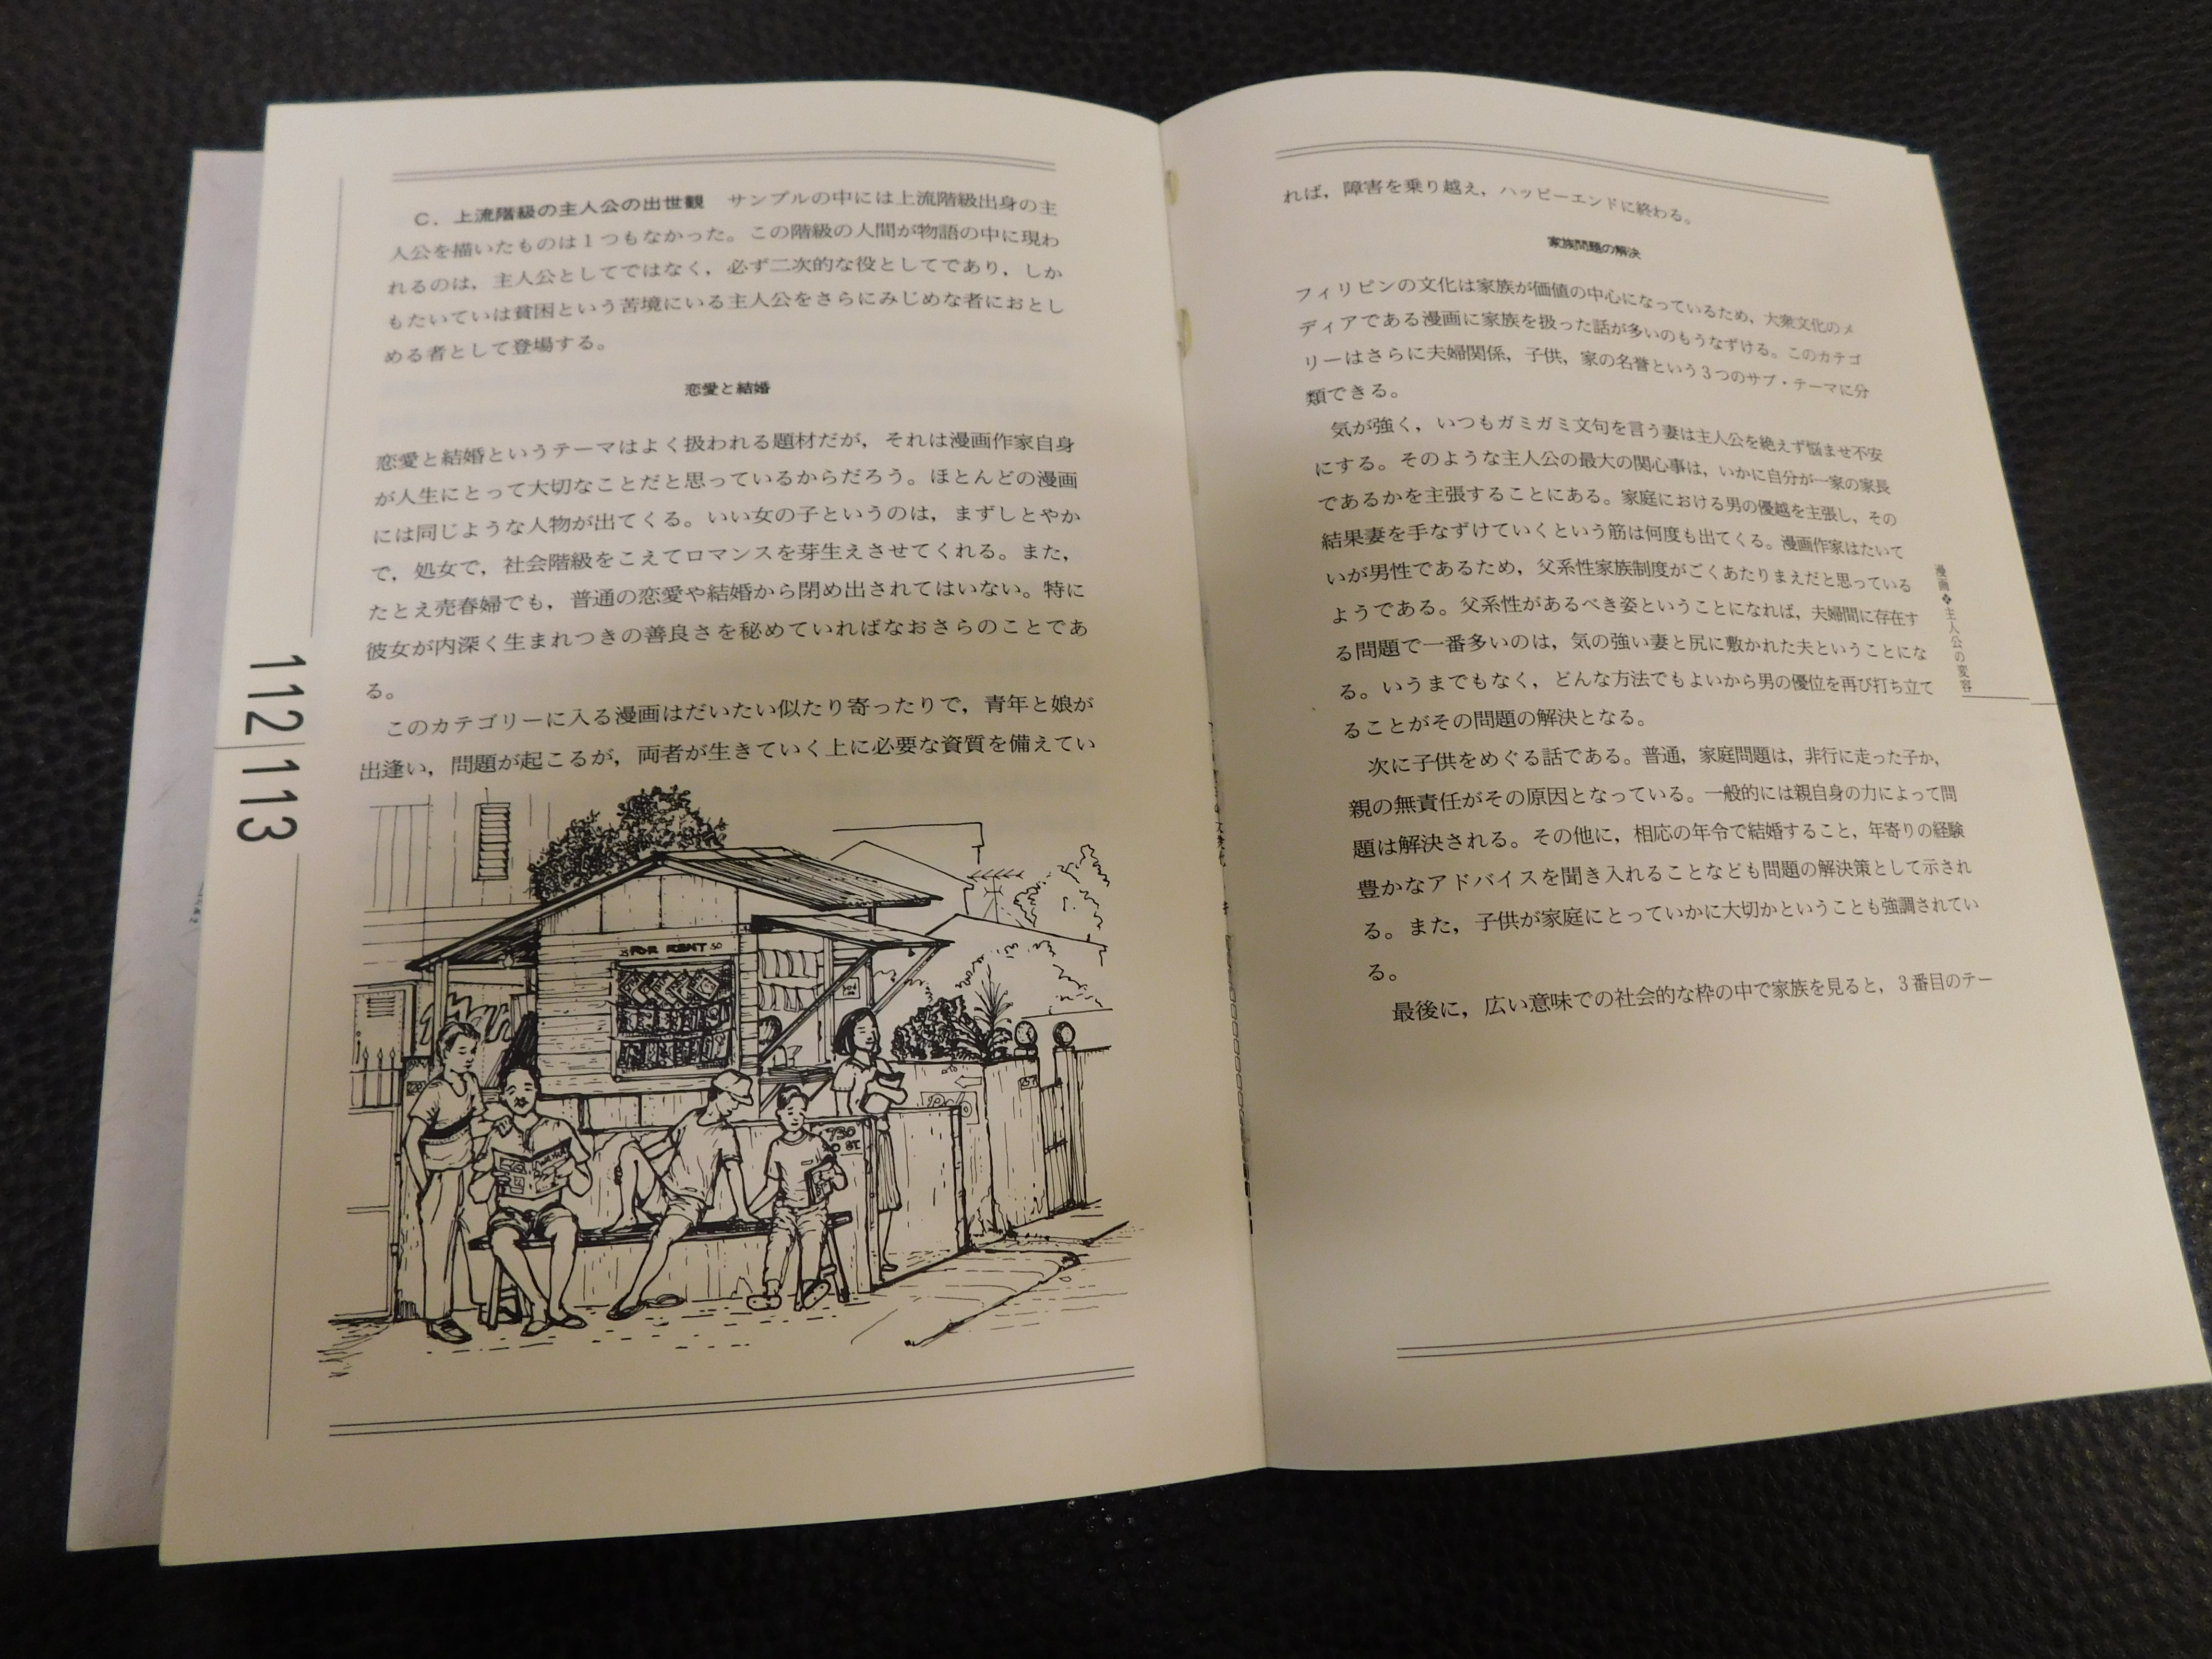 C．上流階級の主人公の出世観　サンプルの中には上流階級出身の主
人公を描いたものは1つもなかった。この階級の人間が物語の中に現わ
れるのは，主人公としてではなく，必ず二次的な役としてであり，しか
もたいていは貧困という苦境にいる主人公をさらにみじめな者におとし
める者として登場する。
恋愛と結婚
恋愛と結婚というテーマはよく扱われる題材だが，それは漫画作家自身
が人生にとって大切なことだと思っているからだろう。ほとんどの漫画
には同じような人物が出てくる。いい女の子というのは，まずしとやか
で，処女で，社会階級をこえてロマンスを芽生えさせてくれる。また，
たとえ売春婦でも，普通の恋愛や結婚から閉め出されてはいない。特に
彼女が内深く生まれつきの善良さを秘めていればなおさらのことであ
る。
このカテゴリーに入る漫画はだいたい似たり寄ったりで，青年と娘が
出逢い，問題が起こるが，両者が生きていく上に必要な資質を備えてい
112|113
FOR RENT
730
れば，障害を乗り越え，ハッピーエンドに終わる。
家族問題の解決
フィリピンの文化は家族が価値の中心になっているため，大衆文化のメ
ディアである漫画に家族を扱った話が多いのもうなずける。このカテゴ
リーはさらに夫婦関係，子供，家の名誉という3つのサブ・テーマに分
類できる。
気が強く，いつもガミガミ文句を言う妻は主人公を絶えず悩ませ不安
にする。そのような主人公の最大の関心事は，いかに自分が一家の家長
であるかを主張することにある。家庭における男の優越を主張し，その
結果妻を手なずけていくという筋は何度も出てくる。漫画作家はたいて
いが男性であるため，父系性家族制度がごくあたりまえだと思っている
ようである。父系性があるべき姿ということになれば，夫婦間に存在す
る問題で一番多いのは，気の強い妻と尻に敷かれた夫ということにな
る。いうまでもなく，どんな方法でもよいから男の優位を再び打ち立て
ることがその問題の解決となる。
次に子供をめぐる話である。普通，家庭問題は，非行に走った子か，
親の無責任がその原因となっている。一般的には親自身の力によって問
題は解決される。その他に，相応の年令で結婚すること，年寄りの経験
豊かなアドバイスを聞き入れることなども問題の解決策として示され
る。また，子供が家庭にとっていかに大切かということも強調されてい
る。
最後に，広い意味での社会的な枠の中で家族を見ると，3番目のテー
漫画❖主人公の変容